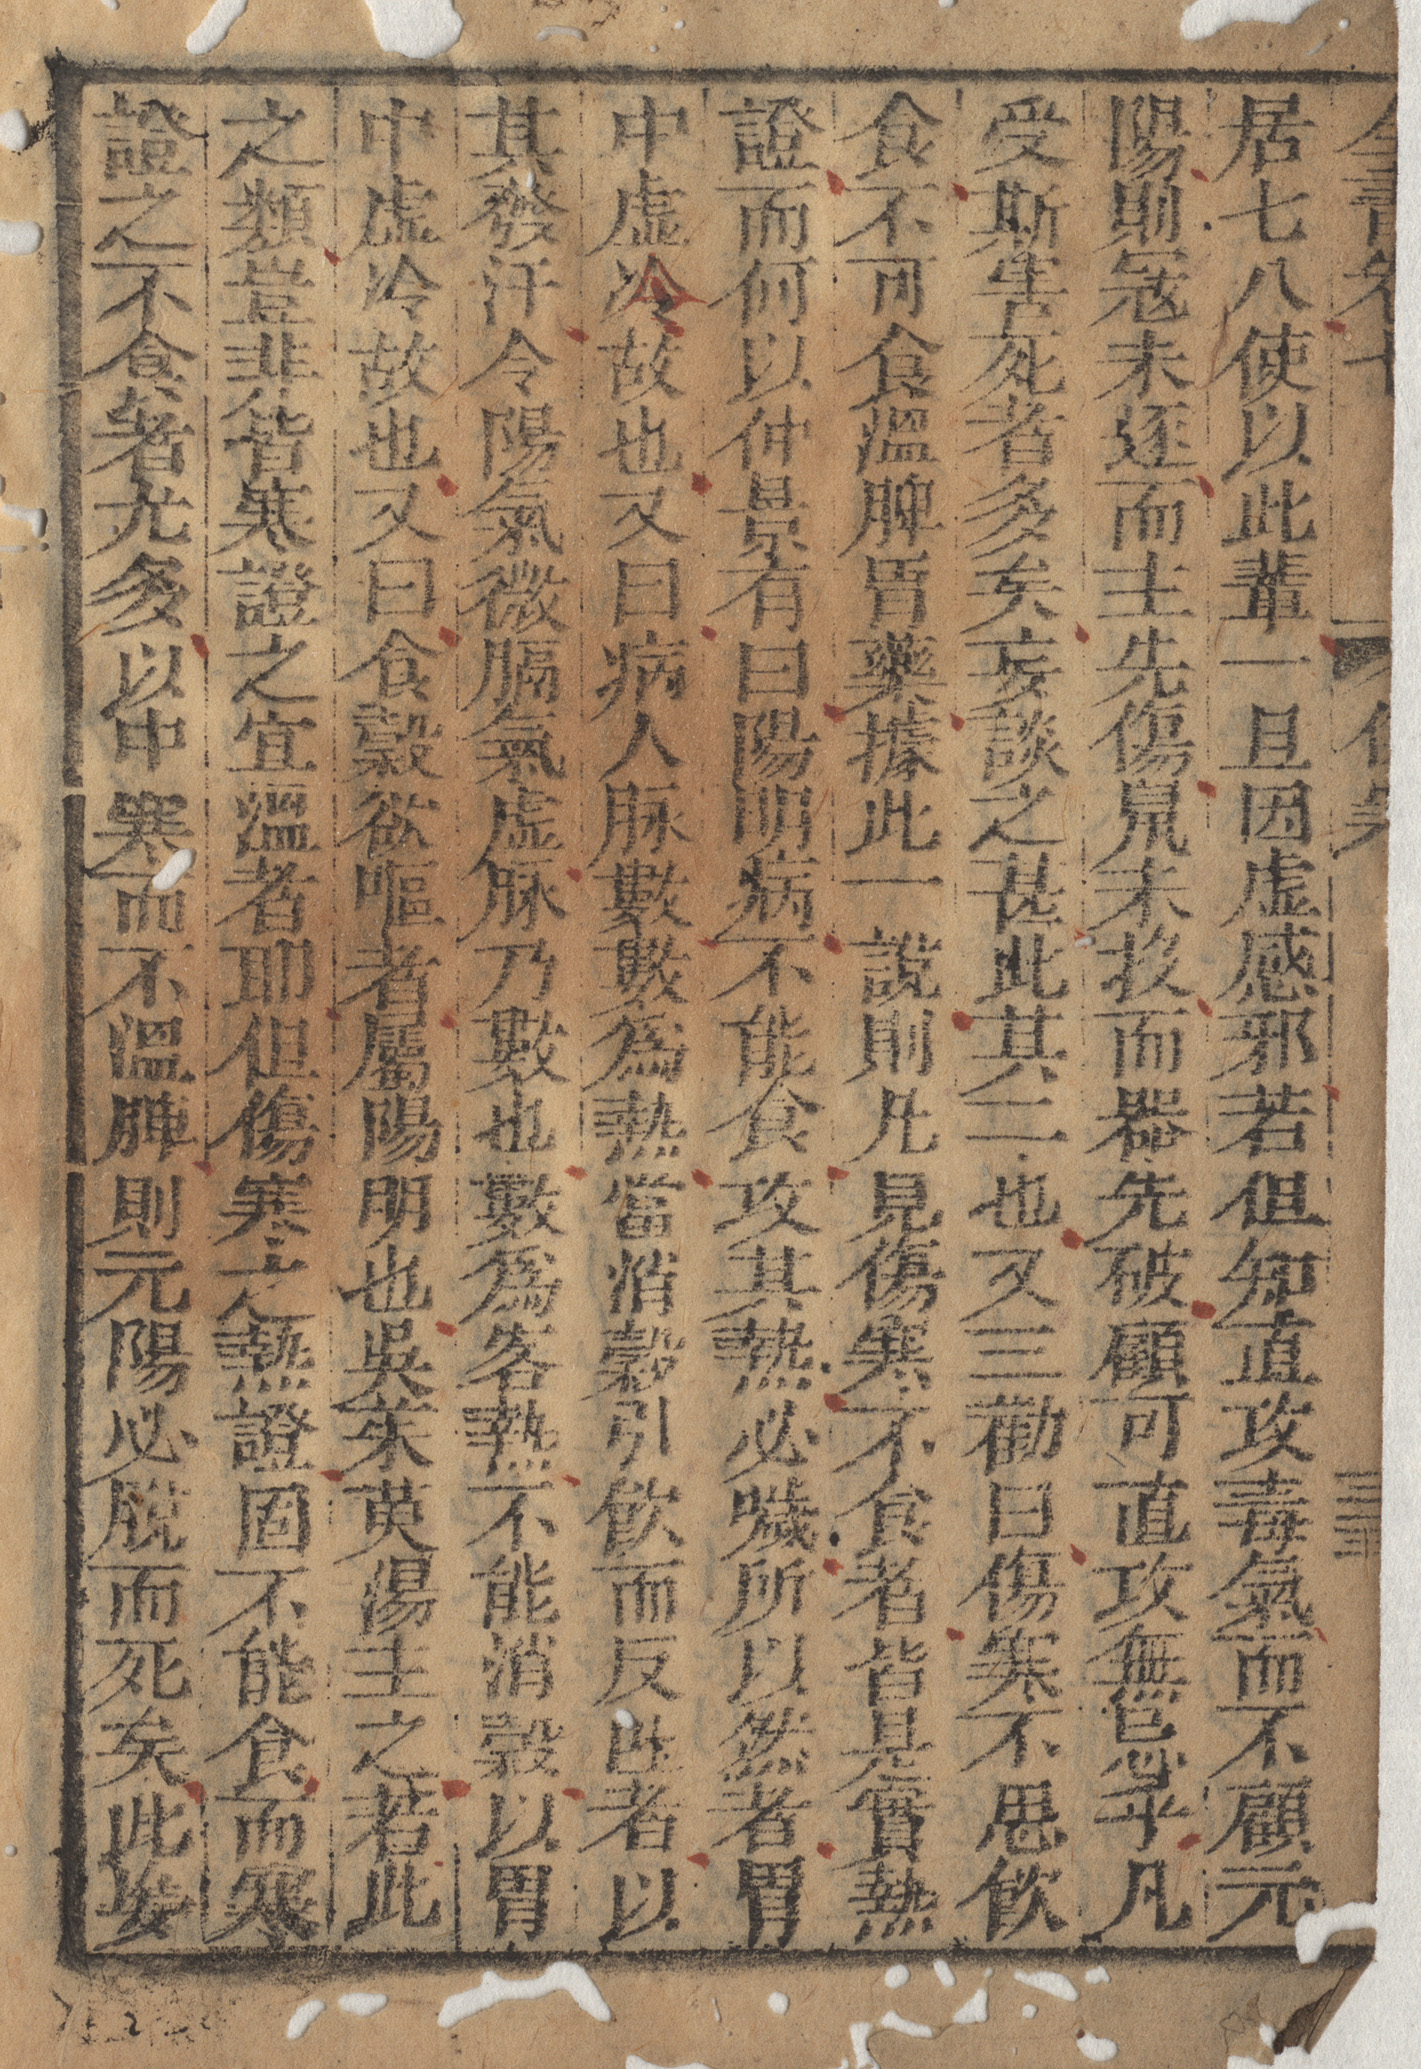 居七八使以此輩一旦因虛感邪若但知直攻毒氣而不顧元
陽則寇未逐而主先傷鼠未投而器先破顧可直攻無忌乎凡
受斯害死者多矣妄談之甚此其二也又三勸曰傷寒不思飲
食不可食溫脾胃藥據此一說則凡見傷寒不食者皆是實熱
證而何以仲景有曰陽明病不能食攻其熱必噦所以然者胃
中虛冷故也又曰病人脉數數為熱當消穀引飲而反吐者以
其發汗令陽氣微膈氣虛脉乃數也數為客熱不能消穀以胃
中虛冷故也又曰食穀欲嘔者屬陽明也吳茱萸湯主之若此
之類豈非皆寒證之宜溫者耶但傷寒之熱證固不能食而寒
證之不食者尤多以中寒而不溫脾則元陽必脫而死矣此妄